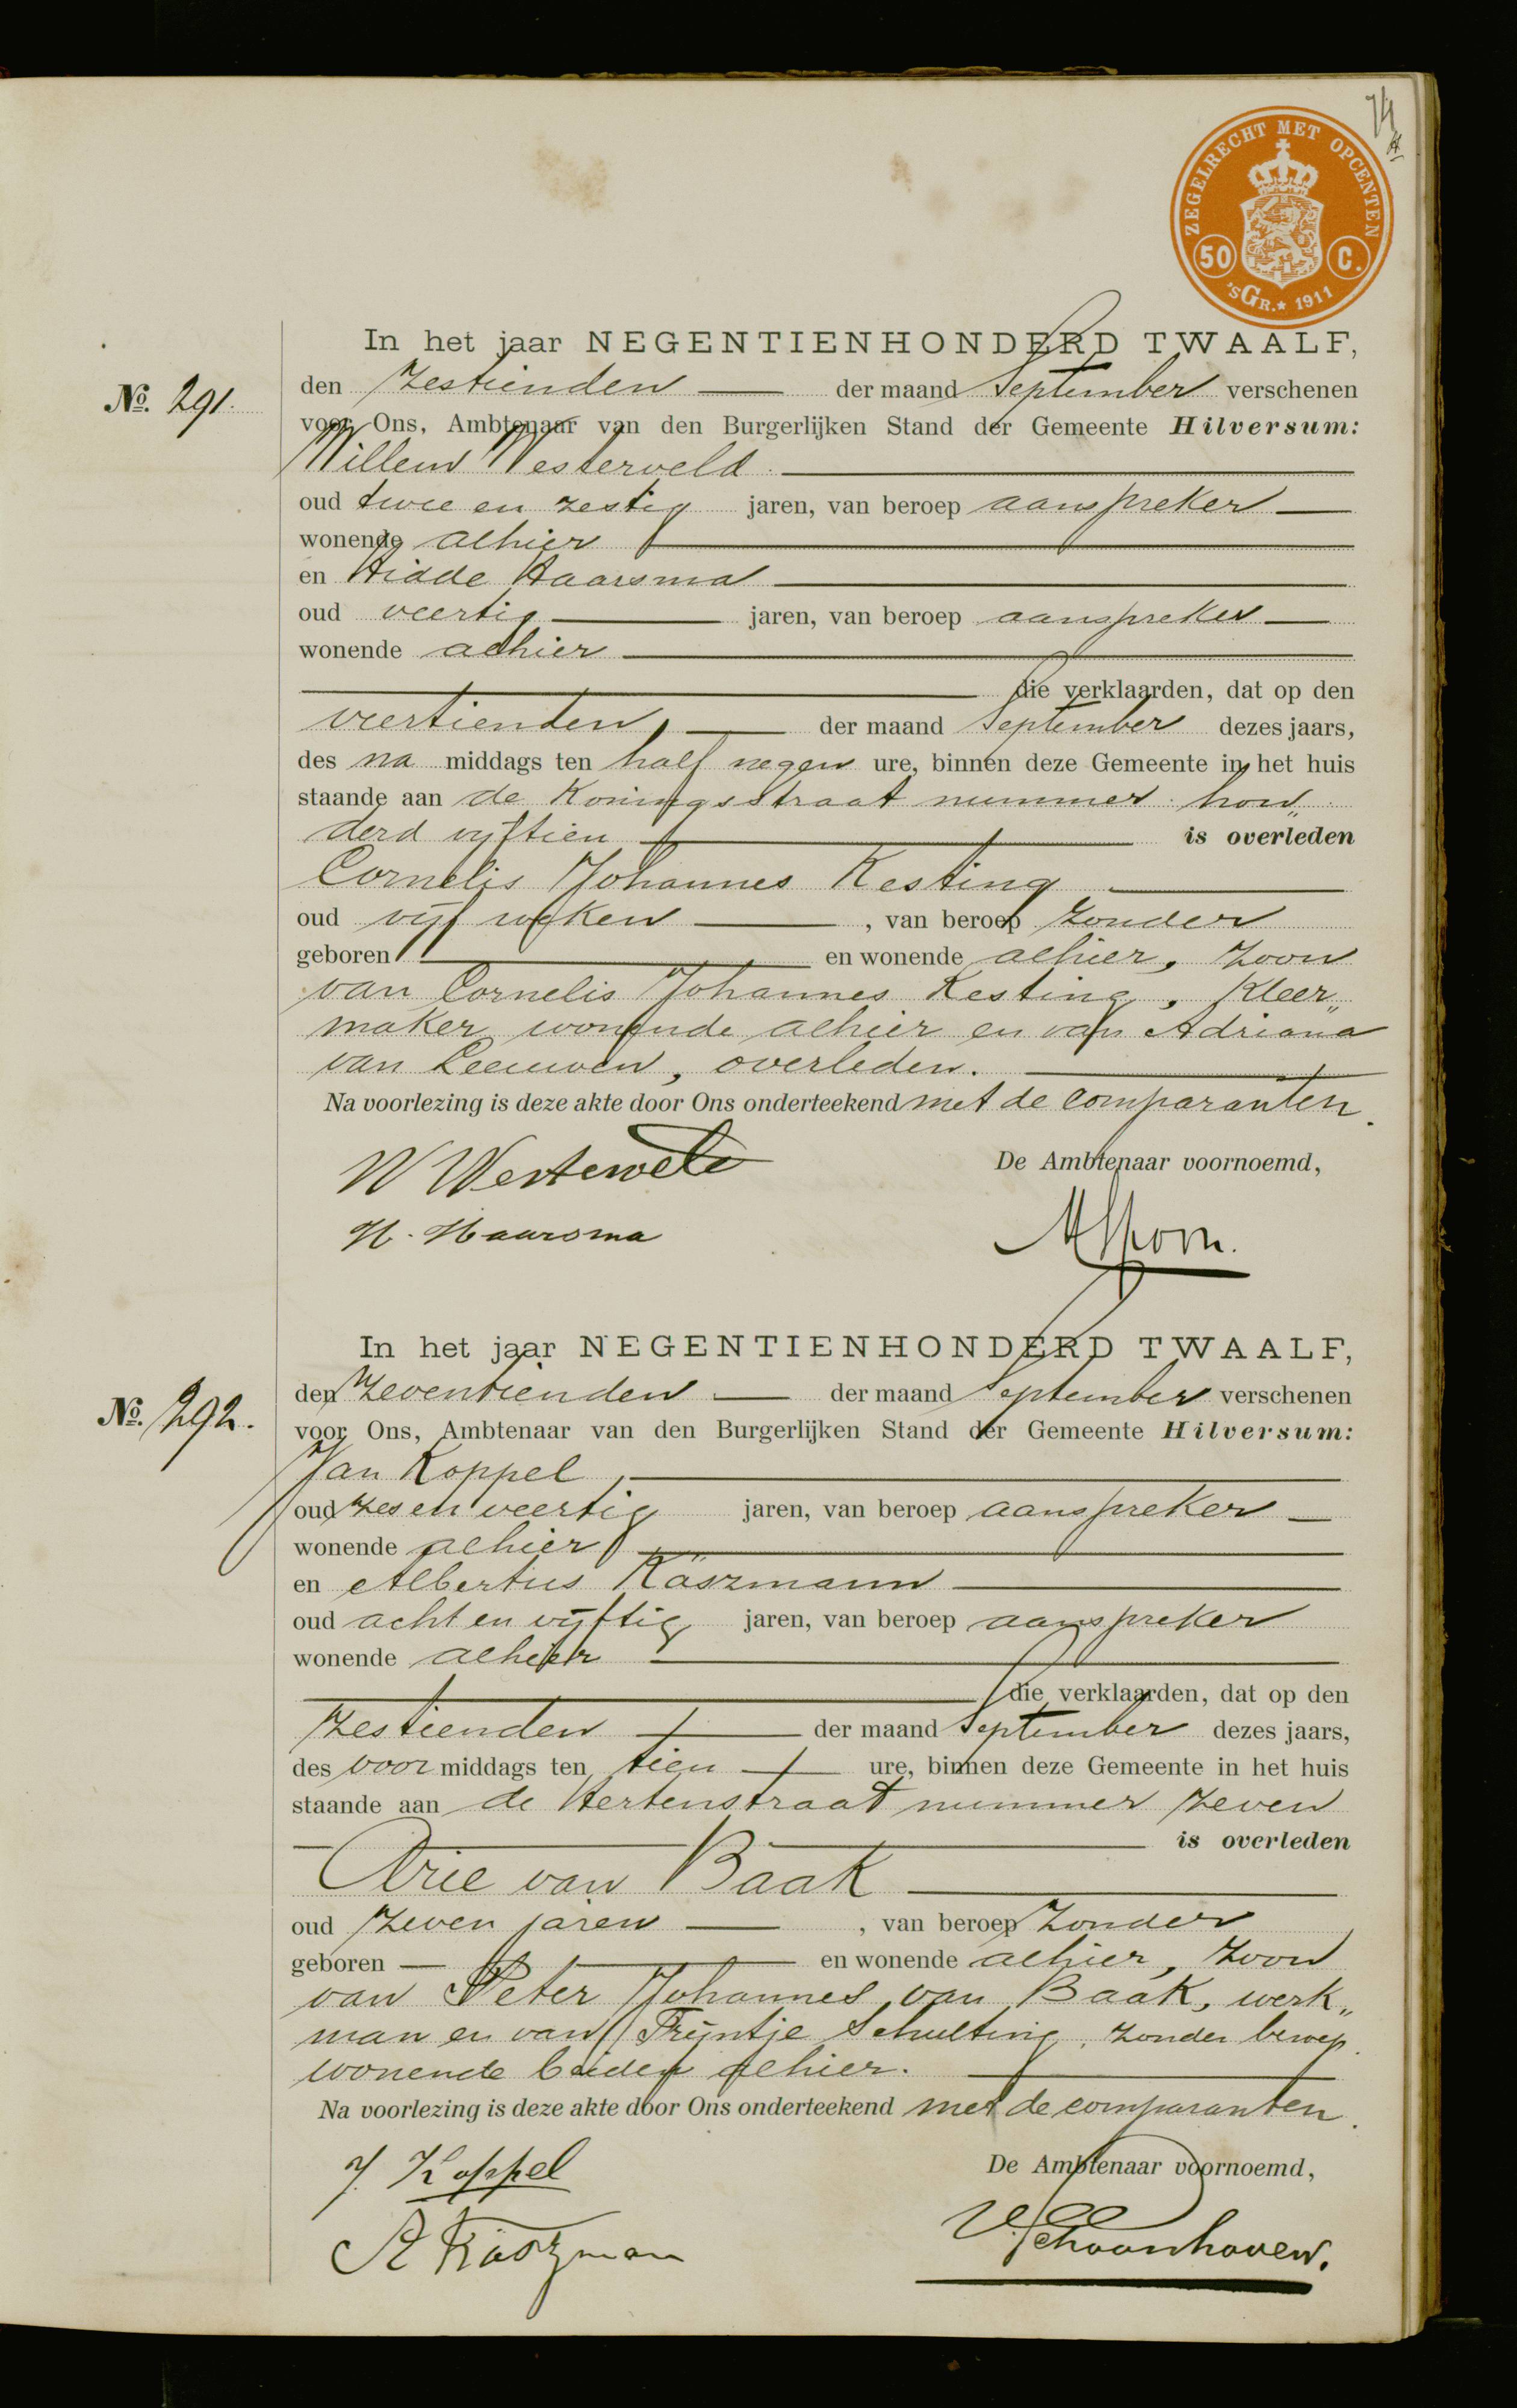 74
ZEGELRECHT MET OPCENTEN
50 C.
'sGR.★ 1911
In het jaar NEGENTIENHONDERD TWAALF,
No. 291. den zestienden der maand September verschenen
voor Ons, Ambtenaar van den Burgerlijken Stand der Gemeente Hilversum:
Willem Westerveld
oud twee en zestig jaren, van beroep aanspreker
wonende alhier
en Hidde Haarsma
oud veertig jaren, van beroep aanspreker
wonende alhier
die verklaarden, dat op den
veertienden der maand September dezes jaars,
des na middags ten half negen ure, binnen deze Gemeente in het huis
staande aan de Koningsstraat nummer hon„
derd vijftien is overleden
Cornelis Johannes Kesting
oud vijf weken, van beroep zonder
geboren en wonende alhier, zoon
van Cornelis Johannes Kesting, kleer„
maker wonende alhier en van Adriana
van Leeuwen, overleden.
Na voorlezing is deze akte door Ons onderteekend met de comparanten.
De Ambtenaar voornoemd,
W Westerveld
H. Haarsma
In het jaar NEGENTIENHONDERD TWAALF,
No. 292. den zeventienden der maand September verschenen
voor Ons, Ambtenaar van den Burgerlijken Stand der Gemeente Hilversum:
Jan Koppel
oud zes en veertig jaren, van beroep aanspreker
wonende alhier
en Albertus Käszmann
oud acht en vijftig jaren, van beroep aanspreker
wonende alhier
die verklaarden, dat op den
zestienden der maand September dezes jaars,
des voor middags ten tien ure, binnen deze Gemeente in het huis
staande aan de Hertenstraat nummer zeven
is overleden
Arie van Baak
oud zeven jaren, van beroep zonder
geboren en wonende alhier, zoon
van Peter Johannes van Baak, werk„
man en van Trijntje Schulting, zonder beroep
wonende beiden alhier.
Na voorlezing is deze akte door Ons onderteekend met de comparanten.
De Ambtenaar voornoemd,
J. Koppel
A Käszman
Schoonhoven.